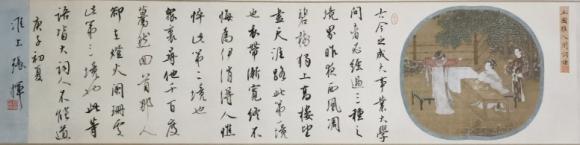 王國維人間詞話
古今之成大事業大學
問者必經過三種之
境界昨夜西風凋
碧樹獨上高樓望
盡天涯路此第一境
也衣帶漸寬終不
悔為伊消得人憔
悴此第二境也
衆裏尋他千百度
驀然回首那人
却在燈火闌珊處
此第三境也此等
語皆大詞人不能道
庚子初夏
淮上張